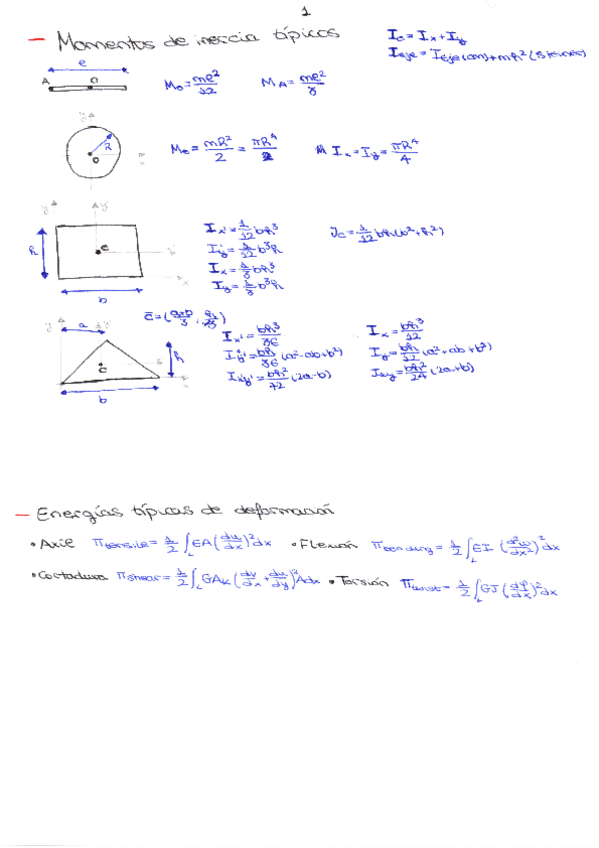 1
— Momentos de inercia típicos
I_C = I_x + I_y
I_eje = I_eje (CM) + mR² (Steiner)
e
A O
M_O = me²/12 M_A = me²/3
y
R
O
x
M_C = mR²/2 = πR⁴/2 I_x = I_y = πR⁴/4
y y'
h
C
x'
x
b
I_x' = 1/12 bh³
I_y' = 1/12 b³h
I_x = 1/3 bh³
I_y = 1/3 b³h
J_C = 1/12 bh(b² + h²)
C = (a+b/3, h/3)
y a y'
h
C
x
b
I_x' = bh³/36
I_y' = bh/36 (a² - ab + b²)
I_x'y' = bh²/72 (2a - b)
I_x = bh³/12
I_y = bh/12 (a² + ab + b²)
I_xy = bh²/24 (2a + b)
— Energías típicas de deformación
• Axil Π_tensile = 1/2 ∫_L EA (du/dx)² dx • Flexión Π_bending = 1/2 ∫_L EI (d²ω/dx²)² dx
• Cortadura Π_shear = 1/2 ∫_L GAk (dv/dx + du/dy)² A dx • Torsión Π_twist = 1/2 ∫_L GJ (dφ/dx)² dx